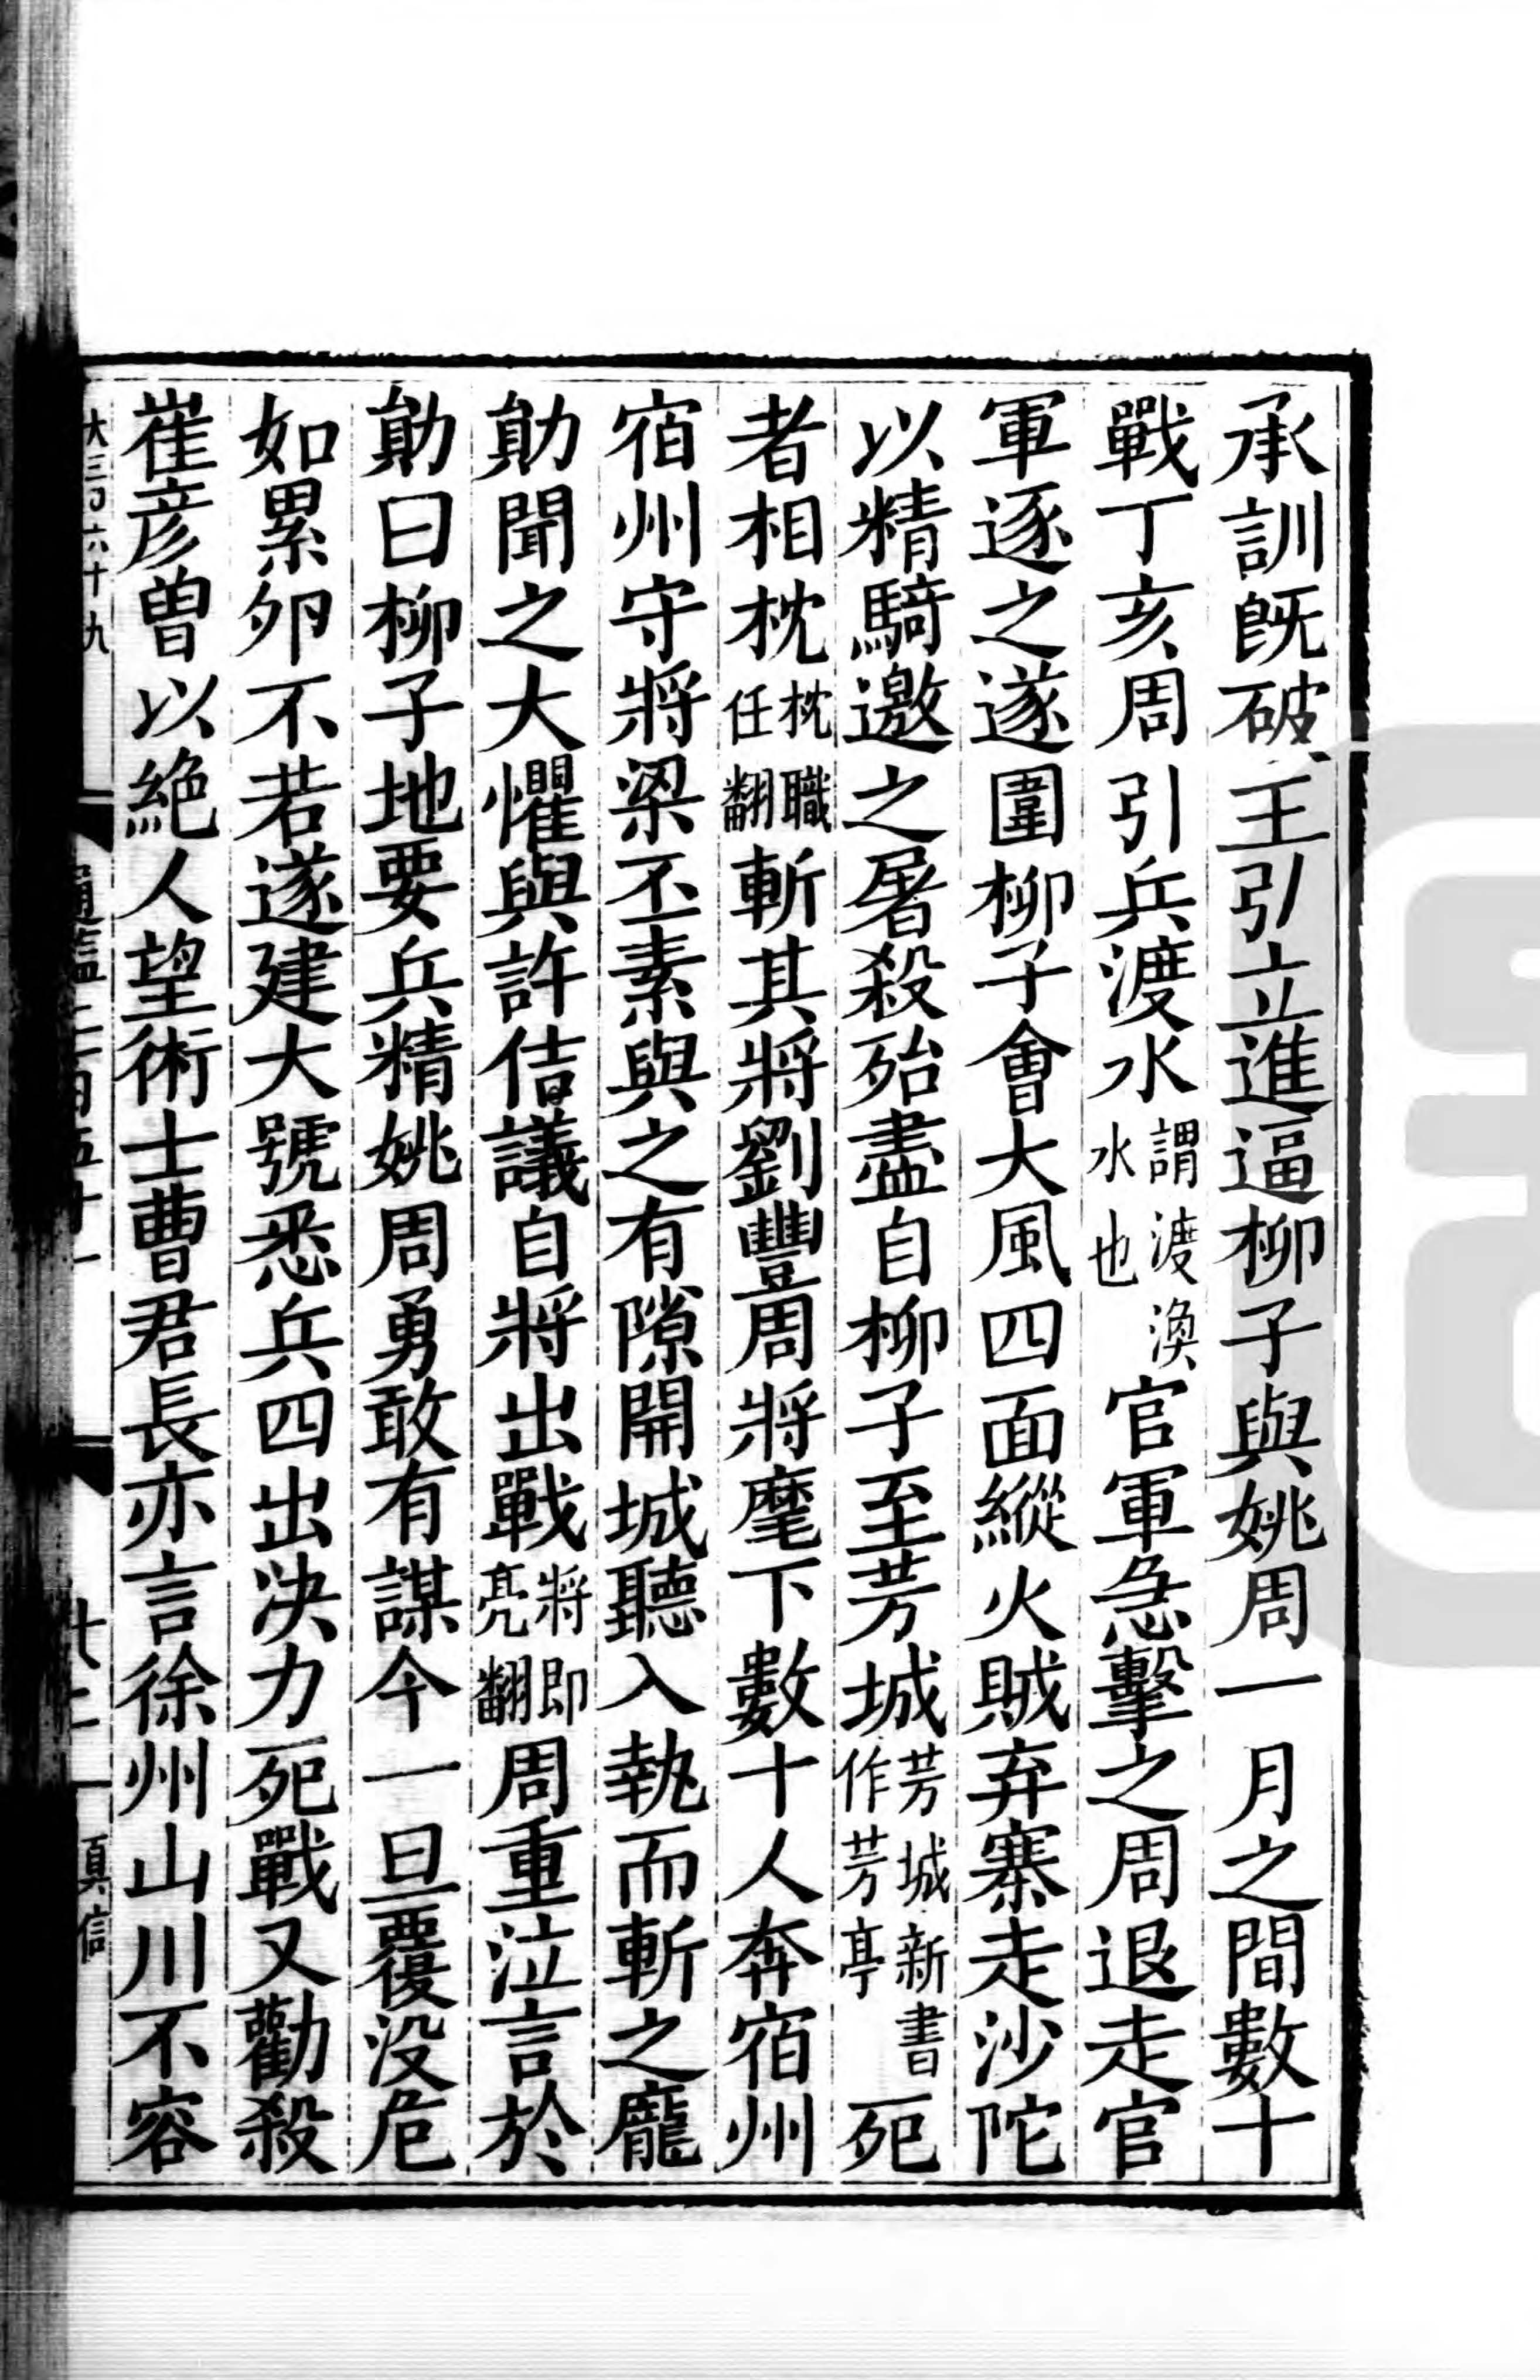 承訓既破王引立進逼柳子與姚周一月之間數十
戰丁亥周引兵渡水謂渡渙水也官軍急擊之周退走官
軍逐之遂圍柳子會大風四面縱火賊弃寨走沙陀
以精騎邀之屠殺殆盡自柳子至芳城芳城新書作芳亭死
者相枕枕職任翻斬其將劉豐周將麾下數十人奔宿州
宿州守將梁丕素與之有隙開城聽入執而斬之龐
勛聞之大懼與許佶議自將出戰將即亮翻周重泣言於
勛曰柳子地要兵精姚周勇敢有謀今一旦覆没危
如累卵不若遂建大號悉兵四出決力死戰又勸殺
崔彦曽以絶人望術士曹君長亦言徐州山川不容
大三百六十九
通鑑二百五十一